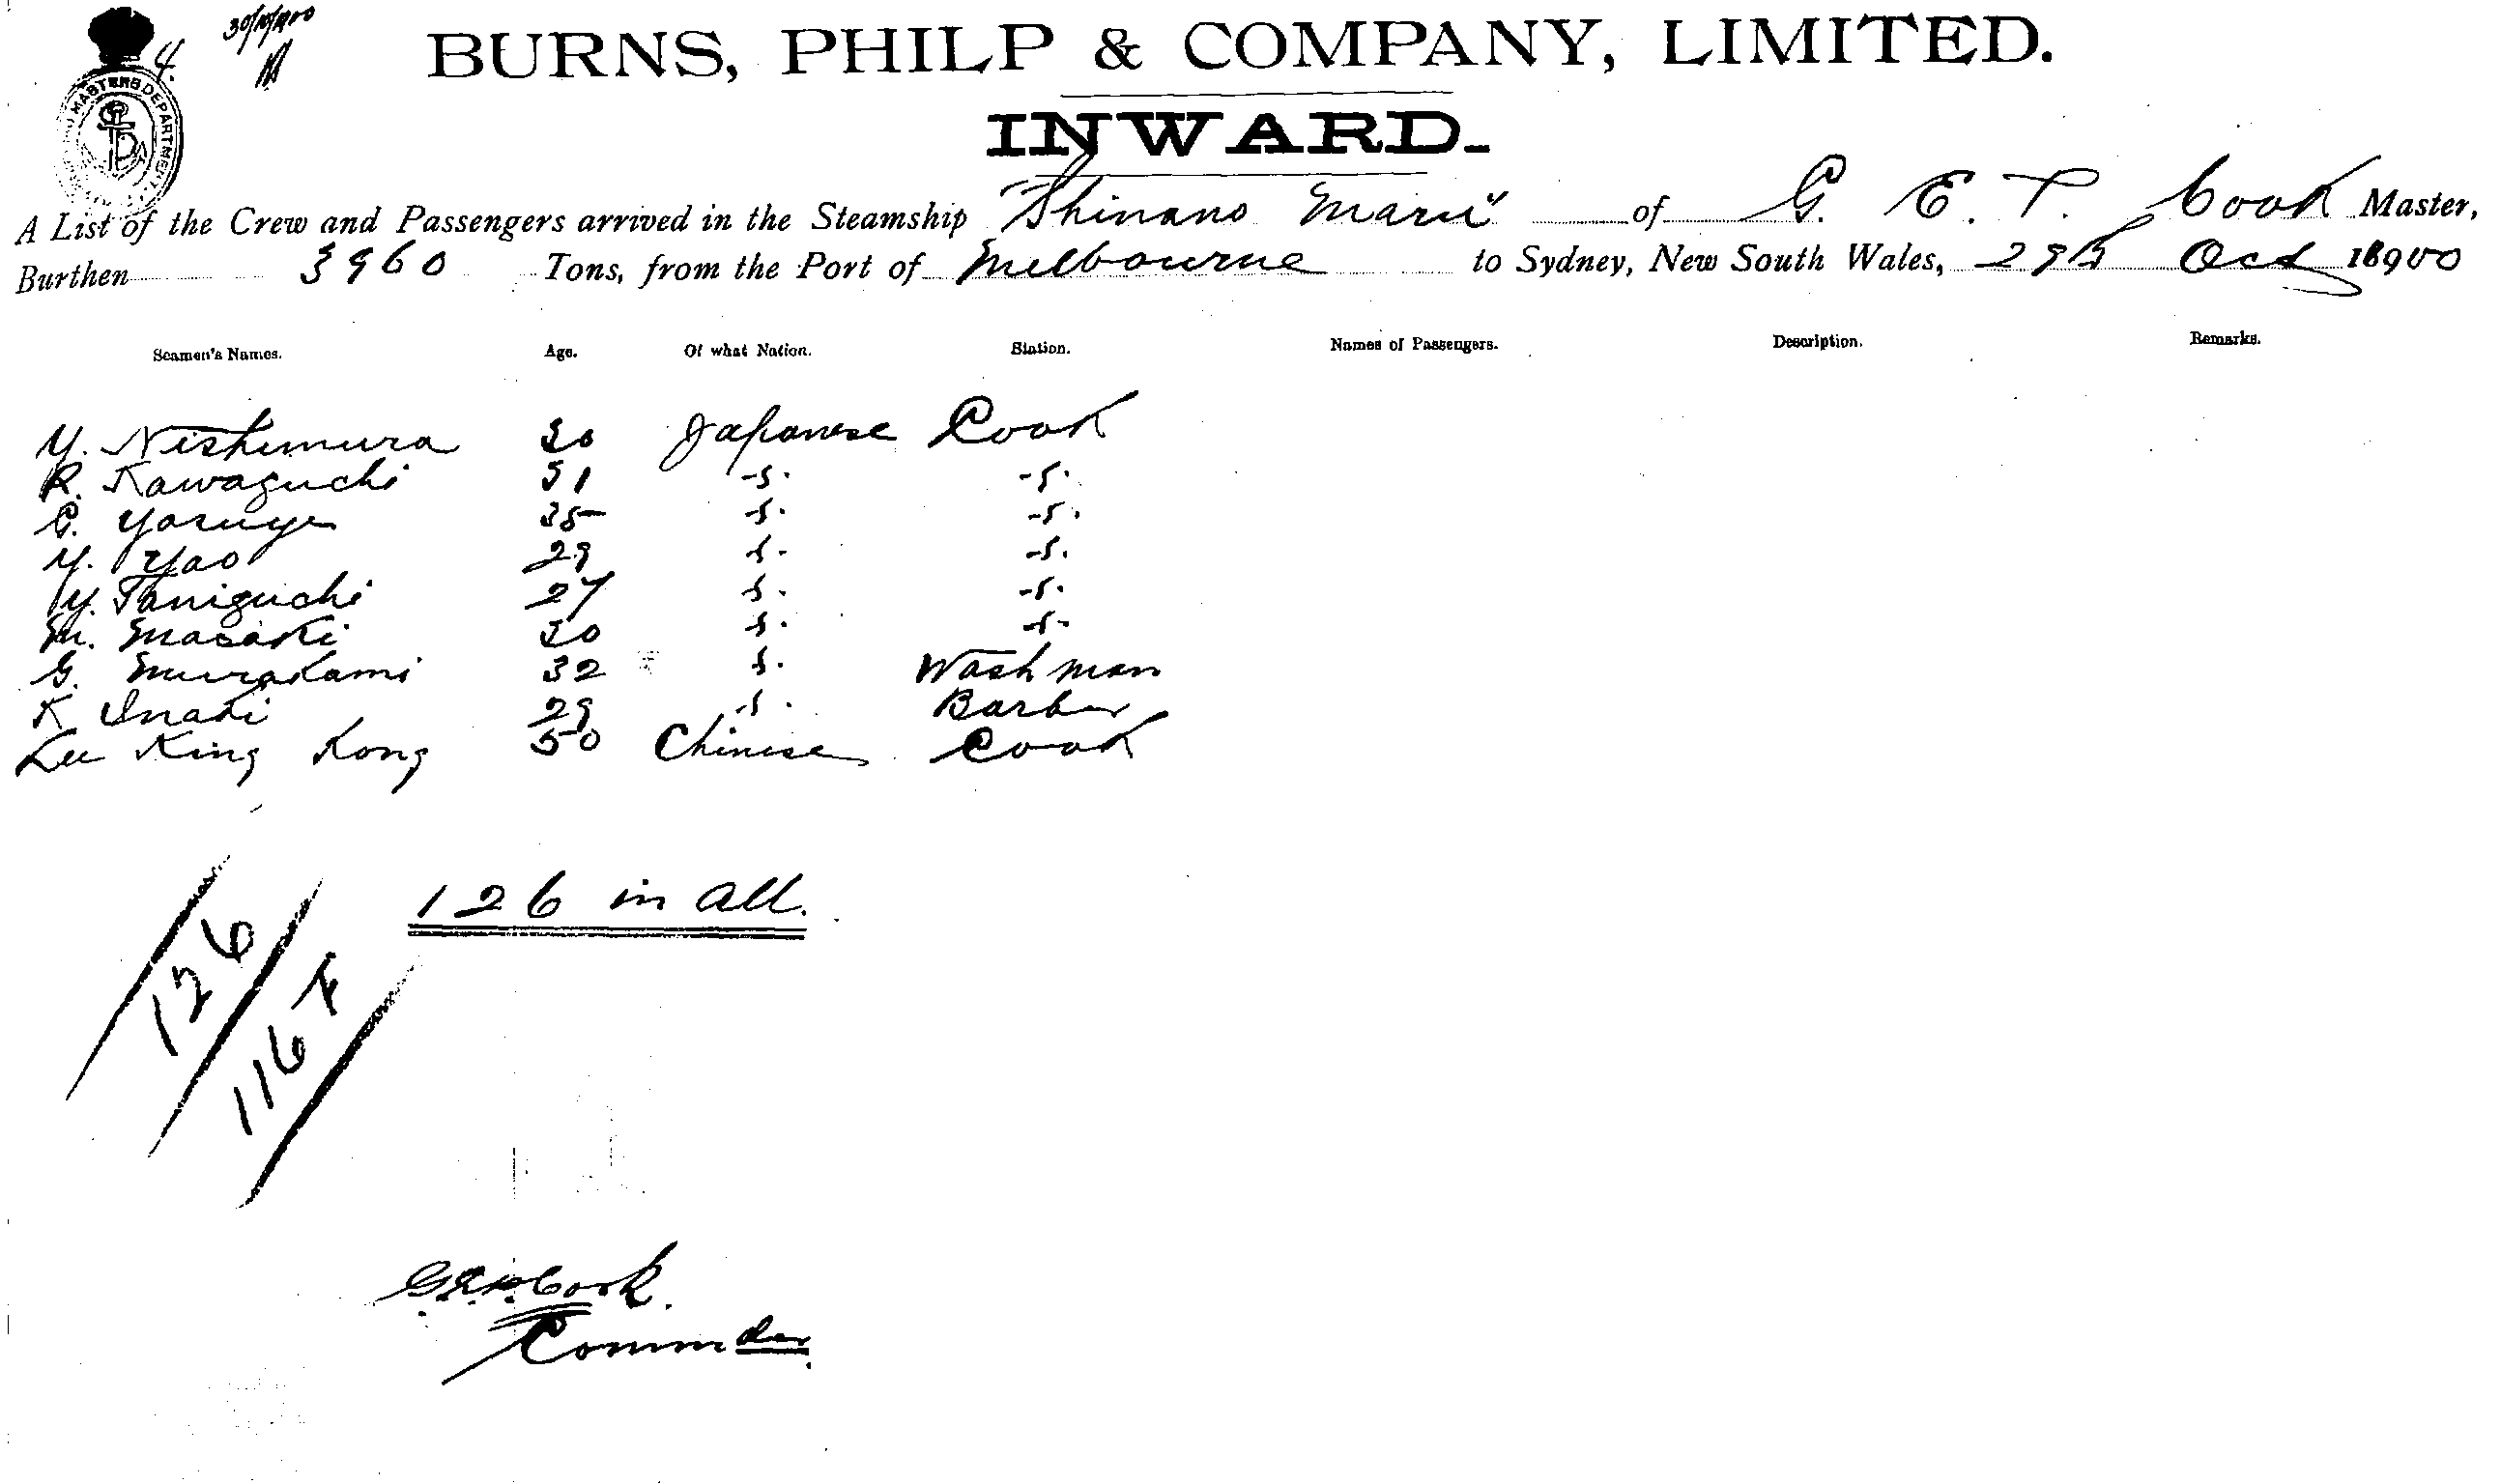 4.
30/10/1900
BURNS, PHILP & COMPANY, LIMITED.
MASTERS DEPARTMENT.
INWARD.
A List of the Crew and Passengers arrived in the Steamship "Shinano Maru" of G. E. T. Cook Master,
Burthen 3960 Tons, from the Port of Melbourne to Sydney, New South Wales, 29th Oct 18900
Seamen's Names. Age. Of what Nation. Station. Names of Passengers. Description. Remarks.
Y. Nishimura 30 Japanese Cook
R. Kawaguchi 31 -s- -s-
G. Yasuye 35 -s- -s-
Y. Yao 29 -s- -s-
Y. Taniguchi 27 -s- -s-
M. Masaki 30 -s- -s-
G. Murakami 32 -s- Wash man
K Inaki 29 -s- Barber
Lee King Kong 50 Chinese Cook
126 in all.
126
116
Cook.
Commder